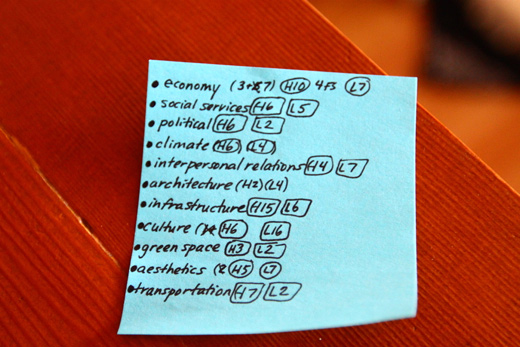 • economy (3+7) H10 4+3 L7
• social services H6 L5
• political H6 L2
• climate (H6) (L4)
• interpersonal relations H4 L7
• architecture (H2) (L4)
• infrastructure H15 L6
• culture ( H6 L16
• green space H3 L2
• aesthetics ( H5 L7
• transportation H7 L2